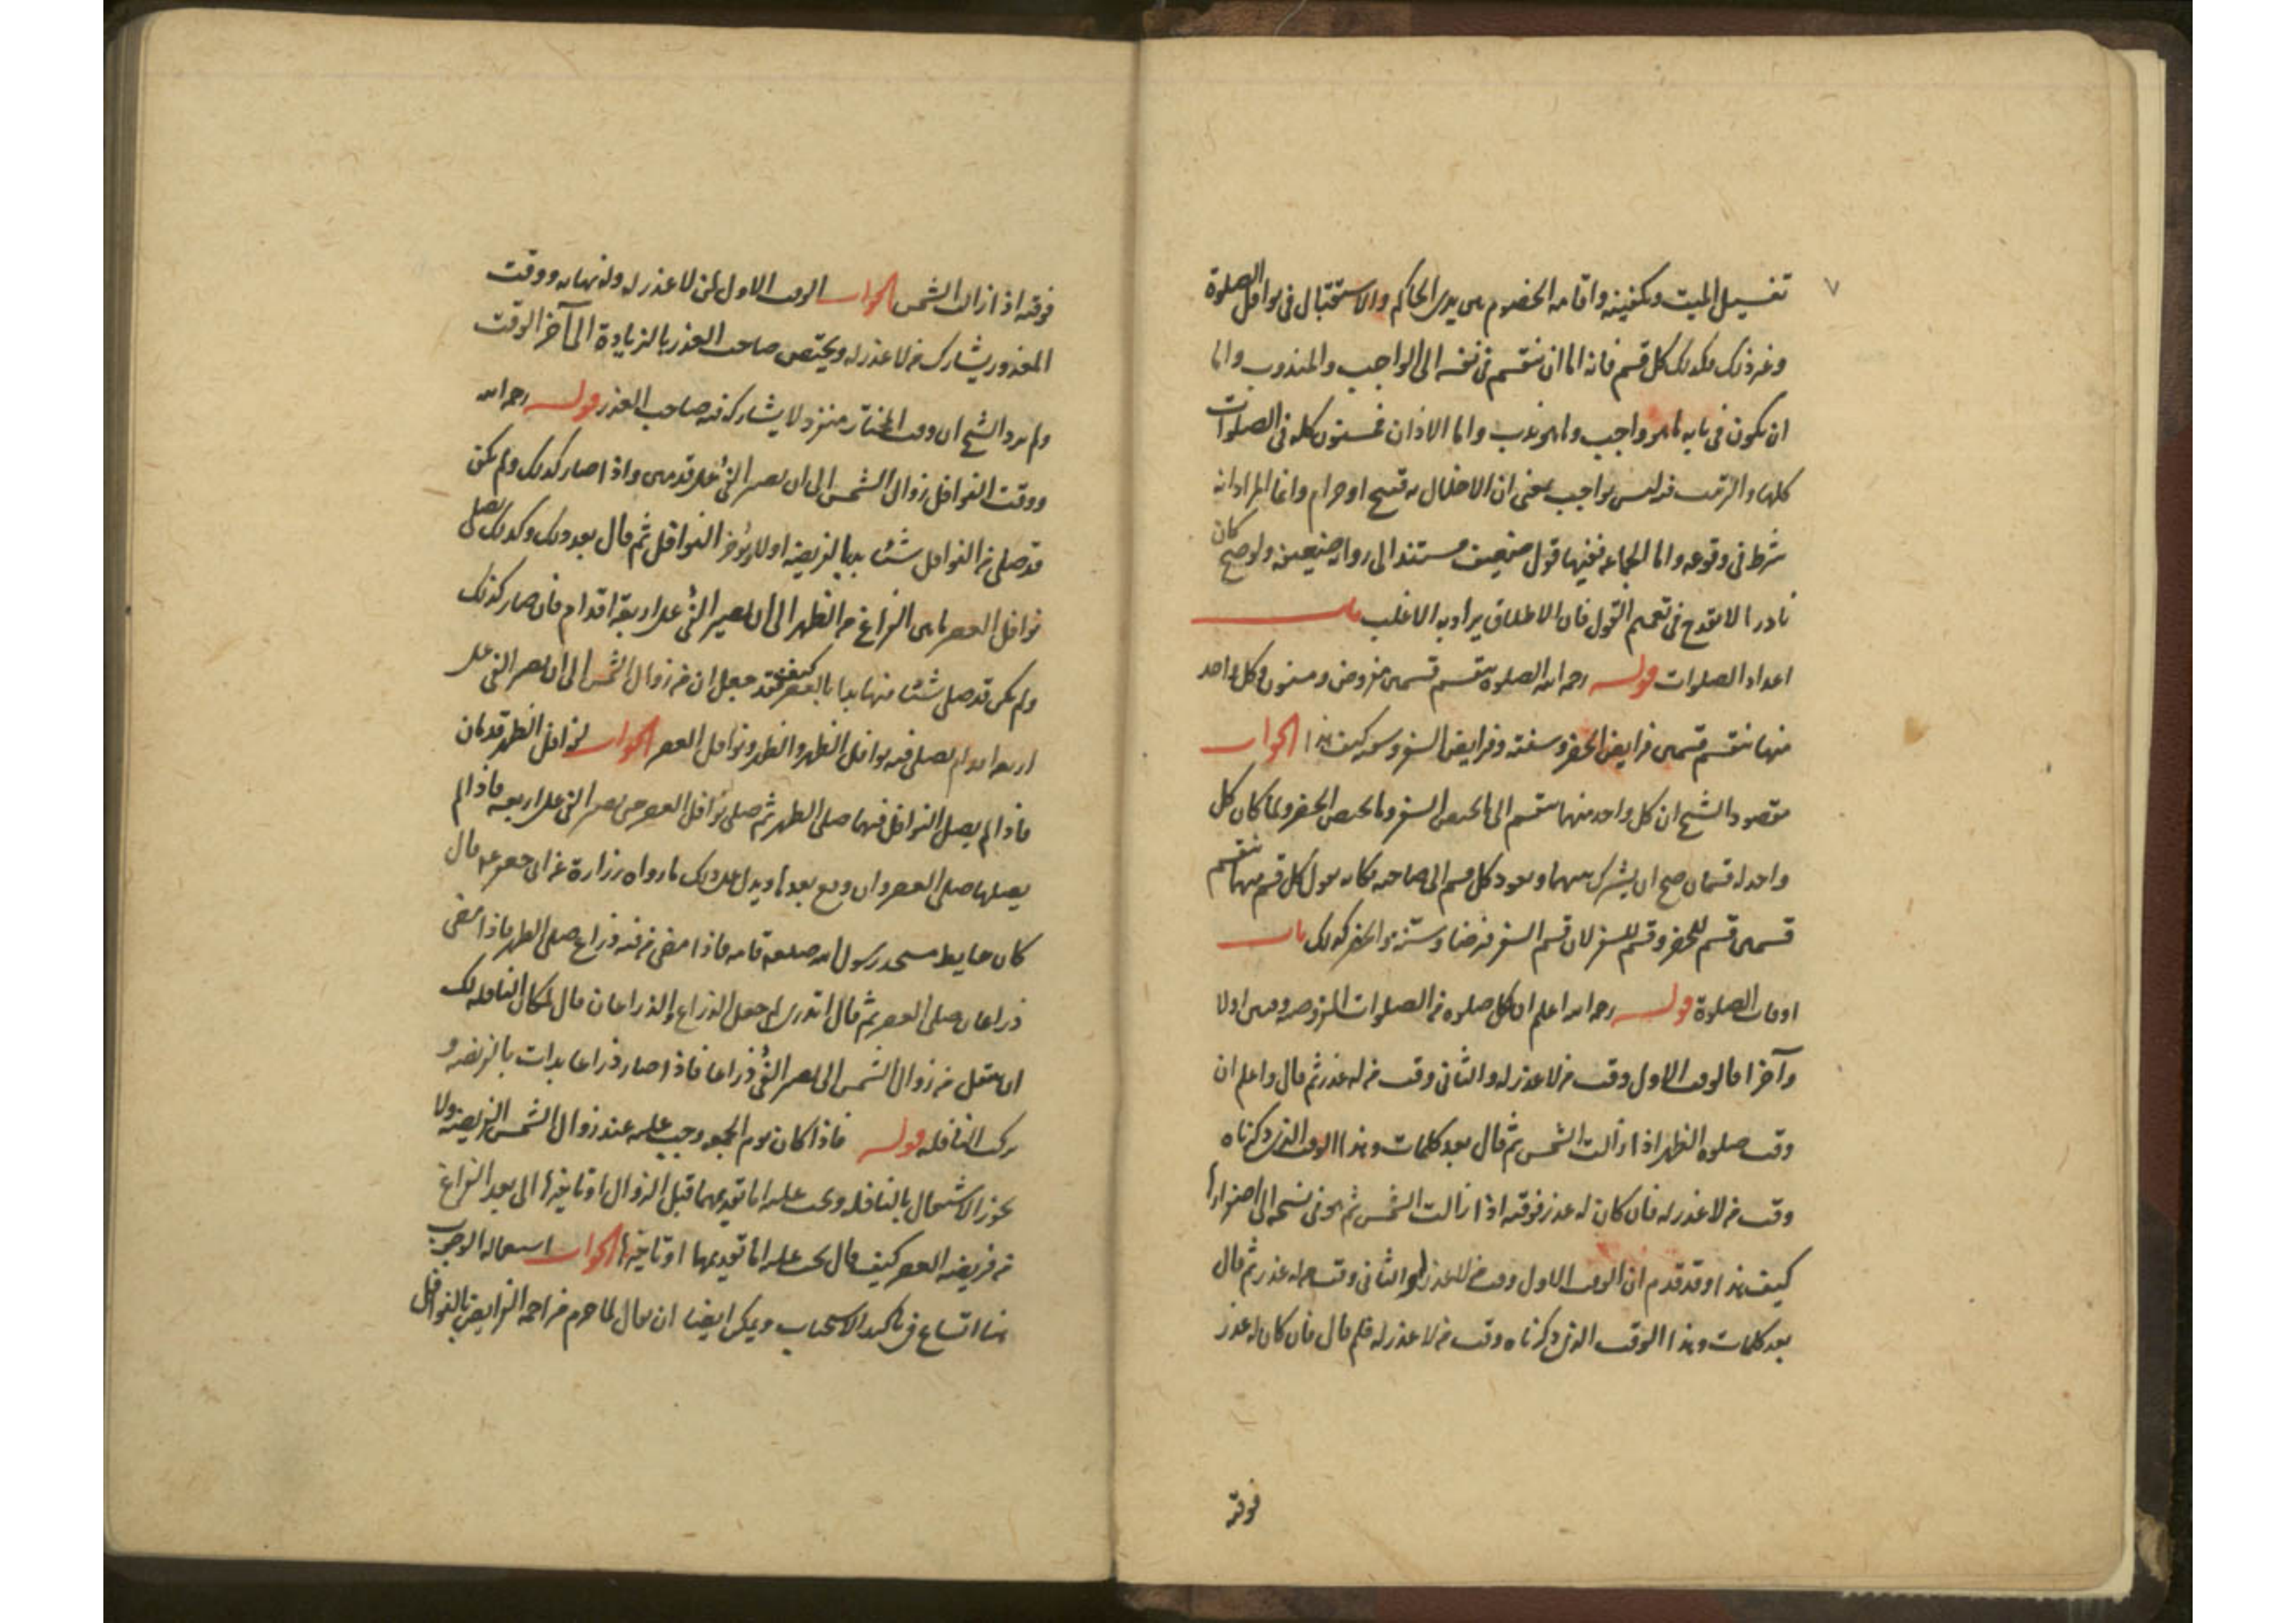 ٧
تغسيل الميت وتكفينه واقامه الخصوم بين يدى الحاكم والاستقبال فى نوافل الصلوة
وغير ذلك وكذلك كل قسم فانه اما ان ينقسم فى نفسه الى الواجب والمندوب واما
ان يكون فى بابه ما هو واجب وما هو ندب واما الاذان فمسنون كله فى الصلوات
كلها والترتيب فيه ليس بواجب بمعنى ان الاخلال به قبيح او حرام وانما المراد انه
شرط فى وقوعه واما الجماعه ففيها قول ضعيف مستند الى روايه ضعيفه ولو صح كان
نادرا لا يقدح فى تعميم القول فان الاطلاق يراد به الاغلب باب
اعداد الصلوات قوله رحمه الله الصلوه تنقسم قسمين مفروض ومسنون وكل واحد
منها ينقسم قسمين فرايض الحضر وسننه وفرايض السفر وسننه كيف هذا الجواب
مقصود الشيخ ان كل واحد منهما ينقسم الى ما يختص السفر وما يختص الحضر ولما كان كل
واحد له قسمان صح ان يشرك بينهما ويعود كل قسم الى صاحبه فكانه يقول كل قسم منهما ينقسم
قسمين قسم للحضر وقسم للسفر لان قسم السفر فرضا وسنة والحضر كذلك باب
اوقات الصلوة قوله رحمه الله اعلم ان كل صلوه من الصلوات المفروضه وقتين اولا
وآخرا فالوقت الاول وقت من لا عذر له والثانى وقت من له عذر ثم قال واعلم ان
وقت صلوه الظهر اذا زالت الشمس ثم قال بعد كلمات وهذا الوقت الذى ذكرناه
وقت من لا عذر له فان كان له عذر فوقته اذا زالت الشمس ثم هو فى فسحه الى اصفرارها
كيف هذا وقد قدم ان الوقت الاول وقت من لا عذر له والثانى وقت من له عذر ثم قال
بعد كلمات وهذا الوقت الذى ذكرناه وقت من لا عذر له فلم قال فان كان له عذر
فوقته
فوقته اذا زالت الشمس الجواب الوقت الاول لمن لا عذر له وله نهايه ووقت
المعذور يشارك من لا عذر له ويختص صاحب العذر بالزيادة الى آخر الوقت
ولم يرد الشيخ ان وقت المختار منفرد لا يشاركه فيه صاحب العذر قوله رحمه الله
ووقت النوافل زوال الشمس الى ان يصير الفئ على قدمين واذا صار كذلك ولم يكن
قد صلى من النوافل شيئا بدا بالفريضه اولا ويؤخر النوافل ثم قال بعد ذلك وكذلك يصلى
نوافل العصر ما بين الفراغ من الظهر الى ان يصير الفئ على اربعة اقدام فان صار كذلك
ولم يكن قد صلى شيئا منها بدا بالعصر كيف فقد جعل ان من زوال الشمس الى ان يصير الفئ على
اربعه اقدام يصلى فيه نوافل الظهر والظهر ونوافل العصر الجواب لنوافل الظهر قدمان
فاذا لم يصل النوافل فيهما صلى الظهر ثم صلى نوافل العصر حتى يصير الفئ على اربعه فاذا لم
يصلها صلى العصر وان وقع بعدها ويدل على ذلك ما رواه زرارة عن ابى جعفر ع قال
كان حايط مسجد رسول الله صلعم قامه فاذا مضى من فيه ذراع صلى الظهر فاذا مضى
ذراعان صلى العصر ثم قال اتدرى لم جعل الذراع والذراعان قال لمكان النافله لك
ان تتنفل من زوال الشمس الى يصير الفئ ذراعا فاذا صار ذراعا بدات بالفريضه و
تركت النافله قوله فاذا كان يوم الجمعه وجب عليه عند زوال الشمس الفريضه ولا
يجوز الاشتغال بالنافله ويجب عليه اما تقديمها قبل الزوال او تاخيرها الى بعد الفراغ
من فريضه العصر كيف قال يجب عليه اما تقديمها او تاخيرها الجواب استعماله الوجوب
هنا اتساع فى تاكيد الاستحباب ويمكن ايضا ان يقال لما حرم مزاحمه الفرايض بالنوافل